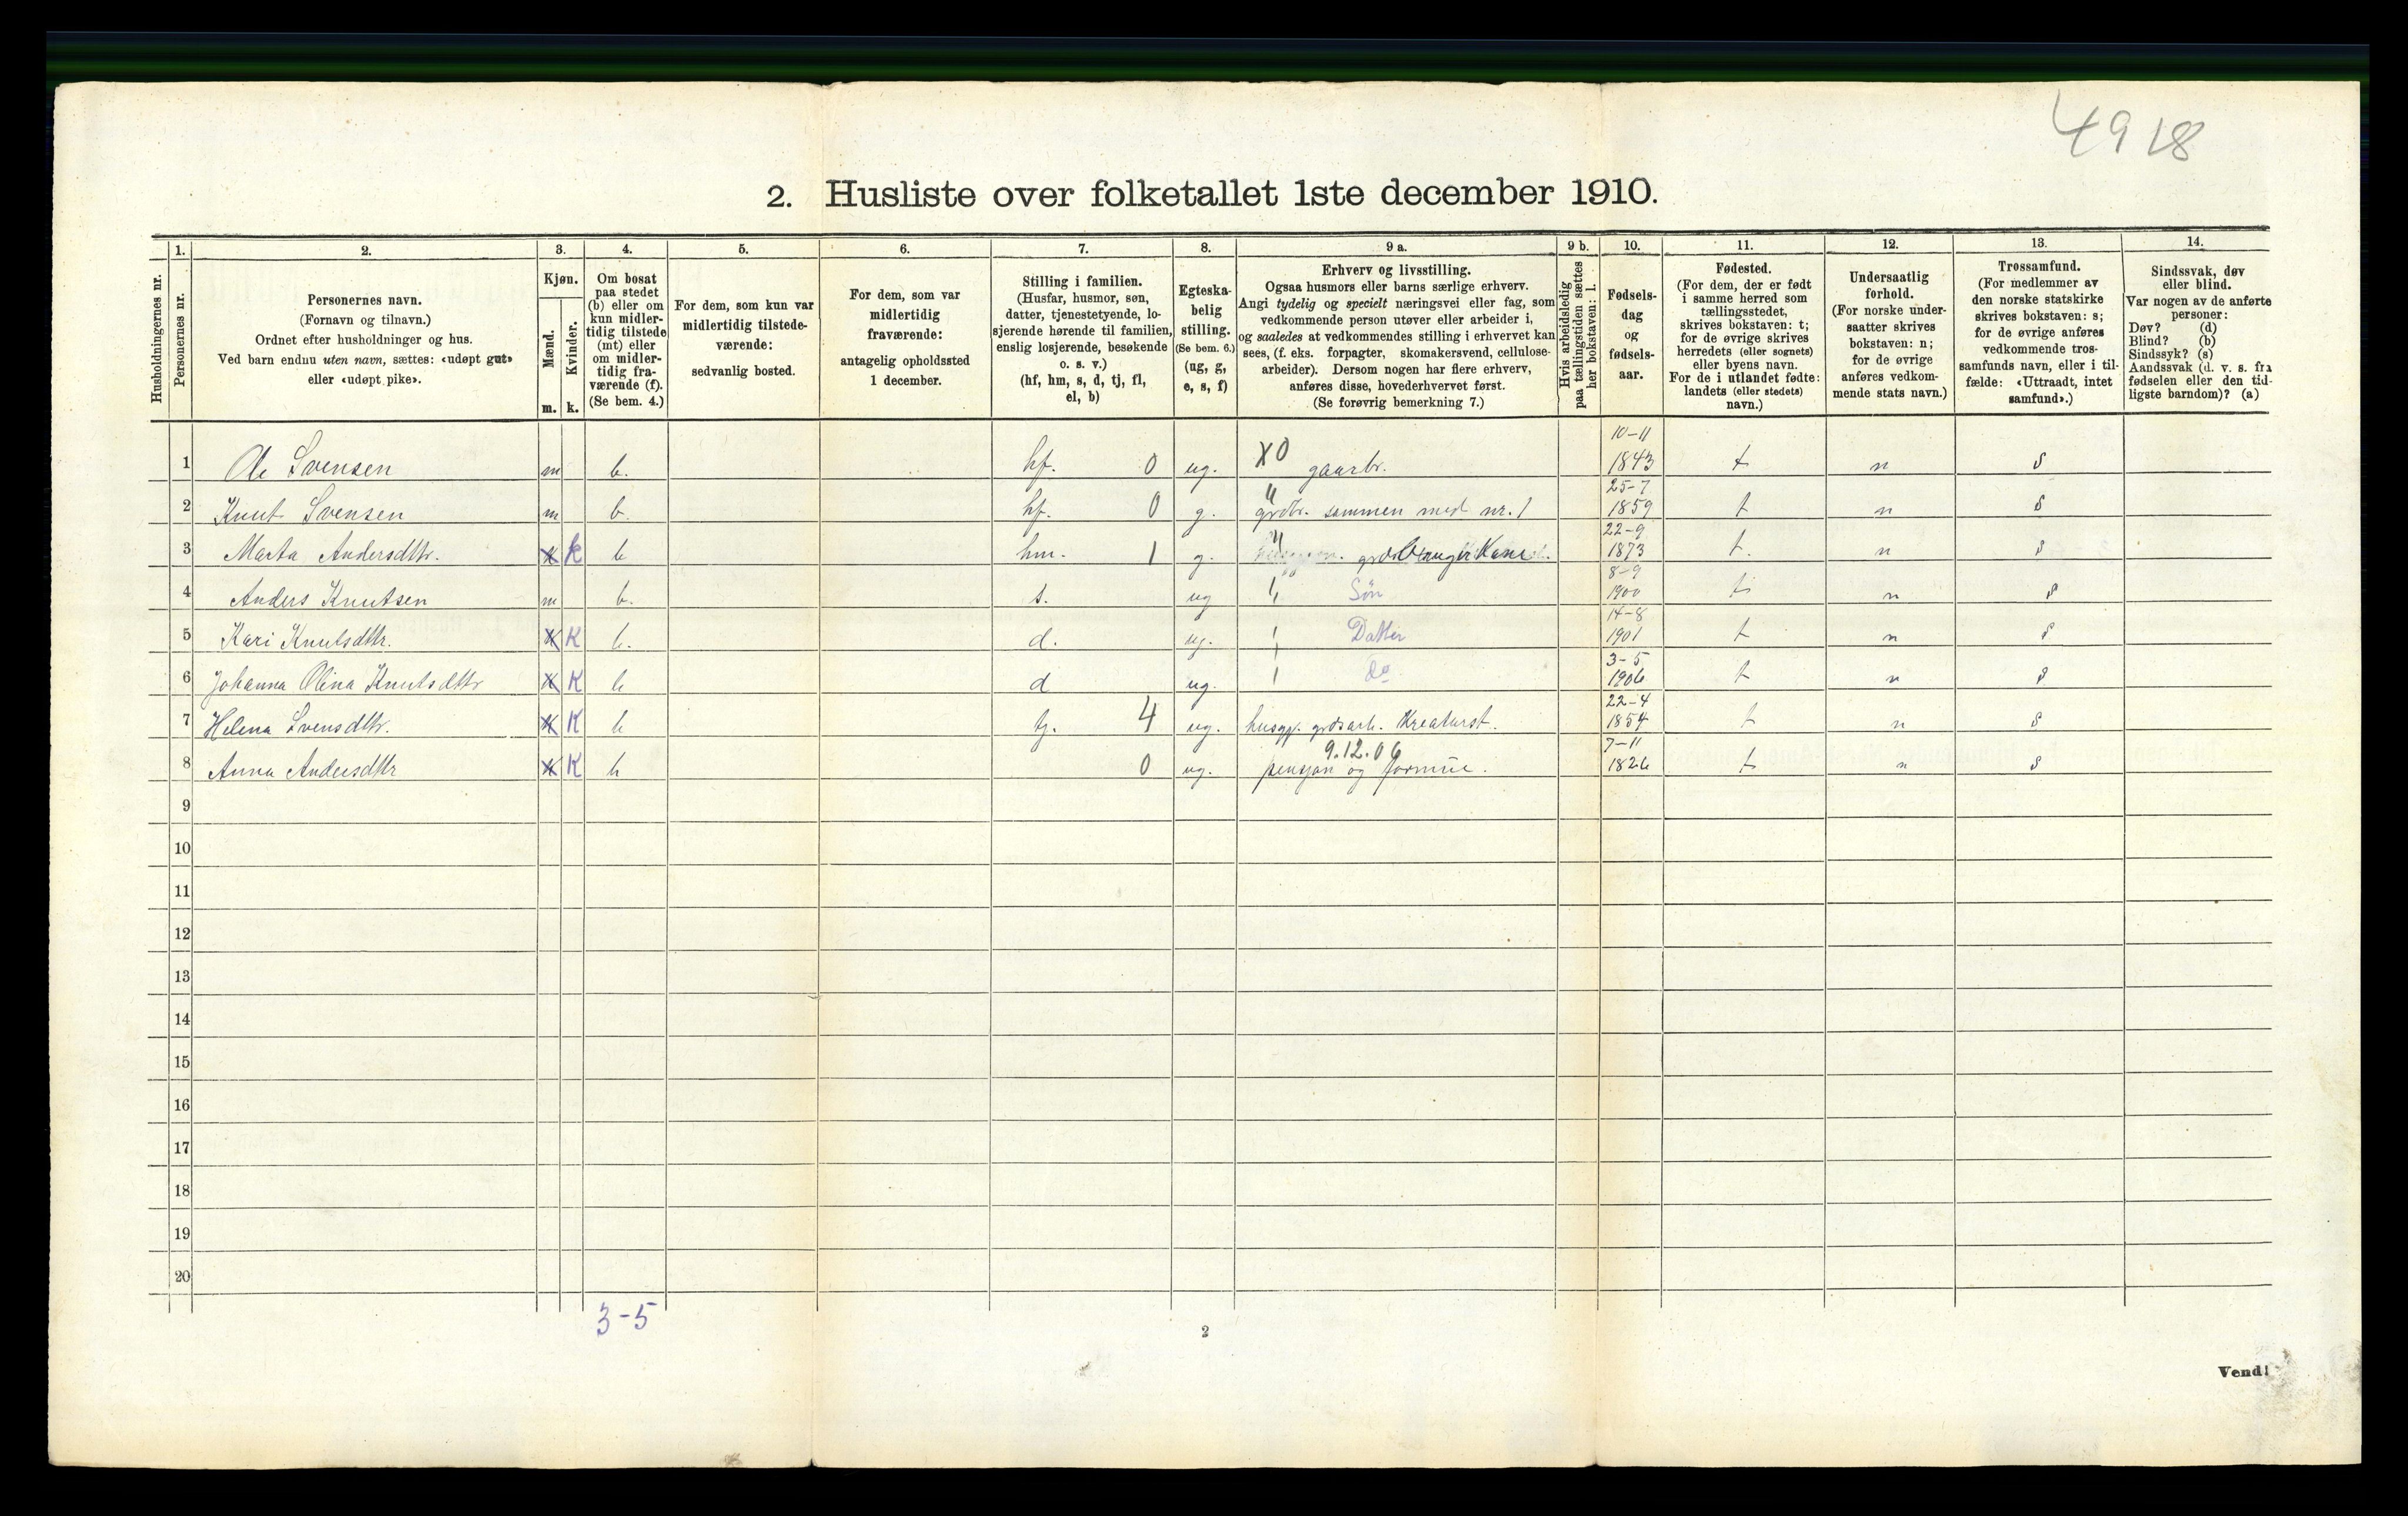 4918
2. Husliste over folketallet 1ste december 1910.
Husholdningernes nr.
1.
Personernes nr.
2.
Personernes navn.
(Fornavn og tilnavn.)
Ordnet efter husholdninger og hus.
Ved barn endnu uten navn, sættes: «udøpt gut»
eller «udøpt pike».
3.
Kjøn.
Mænd.
Kvinder.
m. k.
4.
Om bosat
paa stedet
(b) eller om
kun midler-
tidig tilstede
(mt) eller
om midler-
tidig fra-
værende (f).
(Se bem. 4.)
5.
For dem, som kun var
midlertidig tilstede-
værende:
sedvanlig bosted.
6.
For dem, som var
midlertidig
fraværende:
antagelig opholdssted
1 december.
7.
Stilling i familien.
(Husfar, husmor, søn,
datter, tjenestetyende, lo-
sjerende hørende til familien,
enslig losjerende, besøkende
o. s. v.)
(hf, hm, s, d, tj, fl,
el, b)
8.
Egteska-
belig
stilling.
(Se bem. 6.)
(ug, g,
e, s, f)
9 a.
Erhverv og livsstilling.
Ogsaa husmors eller barns særlige erhverv.
Angi tydelig og specielt næringsvei eller fag, som
vedkommende person utøver eller arbeider i,
og saaledes at vedkommendes stilling i erhvervet kan
sees, (f. eks. forpagter, skomakersvend, cellulose-
arbeider). Dersom nogen har flere erhverv,
anføres disse, hovederhvervet først.
(Se forøvrig bemerkning 7.)
9 b.
Hvis arbeidsledig
paa tællingstiden sættes
her bokstaven: l.
10.
Fødsels-
dag
og
fødsels-
aar.
11.
Fødested.
(For dem, der er født
i samme herred som
tællingsstedet,
skrives bokstaven: t;
for de øvrige skrives
herredets (eller sognets)
eller byens navn.
For de i utlandet fødte:
landets (eller stedets)
navn.)
12.
Undersaatlig
forhold.
(For norske under-
saatter skrives
bokstaven: n;
for de øvrige
anføres vedkom-
mende stats navn.)
13.
Trossamfund.
(For medlemmer av
den norske statskirke
skrives bokstaven: s;
for de øvrige anføres
vedkommende tros-
samfunds navn, eller i til-
fælde: «Uttraadt, intet
samfund».)
14.
Sindssvak, døv
eller blind.
Var nogen av de anførte
personer:
Døv? (d)
Blind? (b)
Sindssyk? (s)
Aandssvak (d. v. s. fra
fødselen eller den tid-
ligste barndom)? (a)
1 Ole Svensen m b. hf. 0 ug. X0 gaarbr. 10-11 1843 t n s
2 Knut Svensen m b. hf. 0 g. " grdbr. sammen med nr. 1 25-7 1859 t n s
3 Marta Andersdttr. k b hm. 1 g. " Kone 22-9 1873 t. n s
4 Anders Knutsen m b. s. ug Søn 8-9 1900 t n s
5 Kari Knutsdttr. K b. d. ug. Datter 14-8 1901 t n s
6 Johanna Olina Knutsdttr K b d ug. do 3-5 1906 t n s
7 Helena Svensdttr. K b tj. 4 ug. husgj. grdsarb. Kreaturst. 22-4 1854 t n s
8 Anna Andersdttr K b 0 ug. 9.12.06 pensjon og formue. 7-11 1826 t n s
9
10
11
12
13
14
15
16
17
18
19
20
3-5
2
Vend!